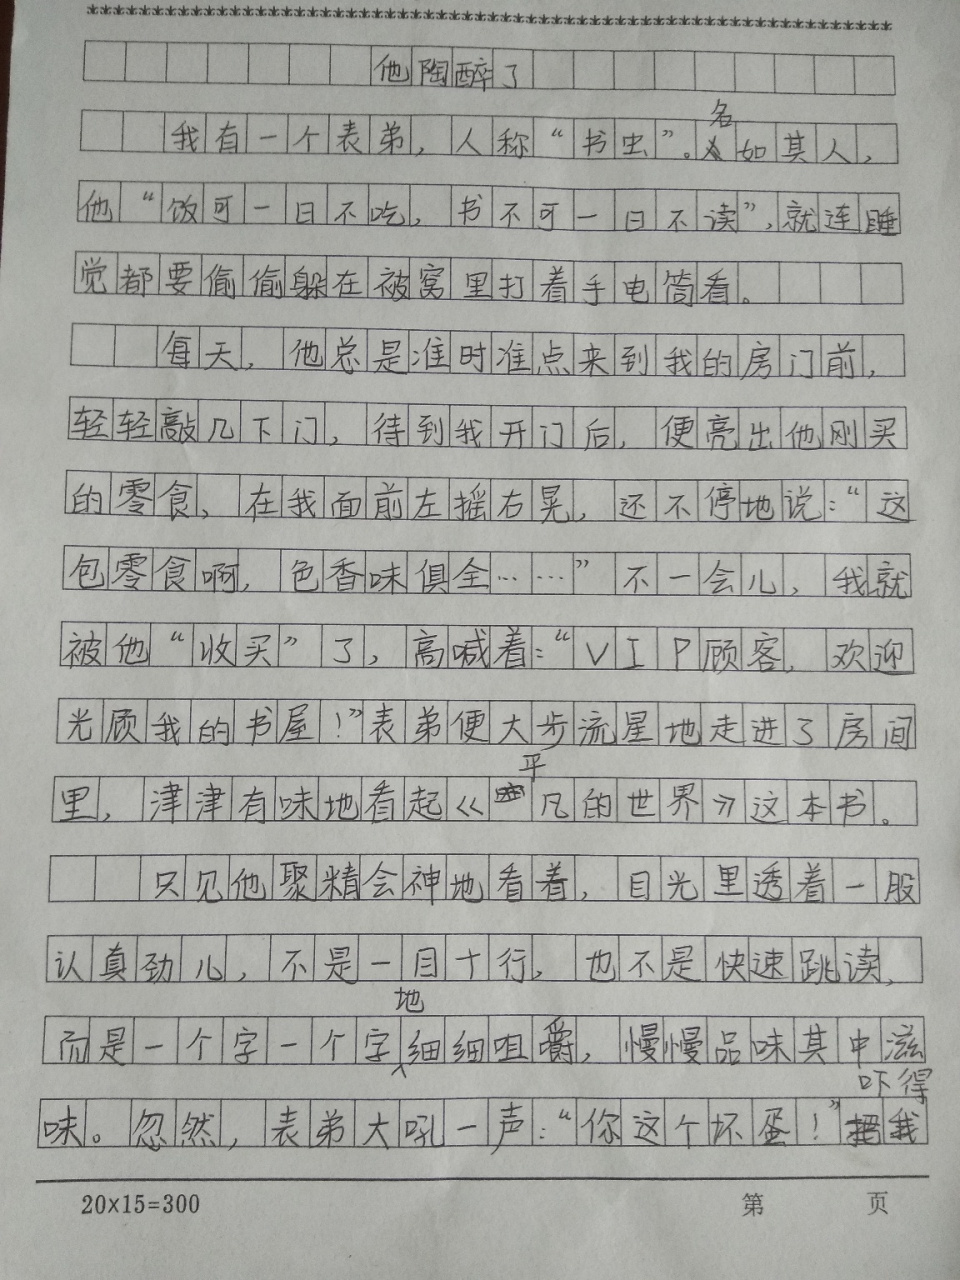 他陶醉了
我有一个表弟，人称“书虫”。名如其人，
他“饭可一日不吃，书不可一日不读”，就连睡
觉都要偷偷躲在被窝里打着手电筒看。
每天，他总是准时准点来到我的房门前，
轻轻敲几下门，待到我开门后，便亮出他刚买
的零食，在我面前左摇右晃，还不停地说：“这
包零食啊，色香味俱全……”不一会儿，我就
被他“收买”了，高喊着：“VIP顾客，欢迎
光顾我的书屋！”表弟便大步流星地走进了房间
里，津津有味地看起《平凡的世界》这本书。
只见他聚精会神地看着，目光里透着一股
认真劲儿，不是一目十行，也不是快速跳读，
而是一个字一个字地细细咀嚼，慢慢品味其中滋
味。忽然，表弟大吼一声：“你这个坏蛋！”吓得我
20×15=300 第 页